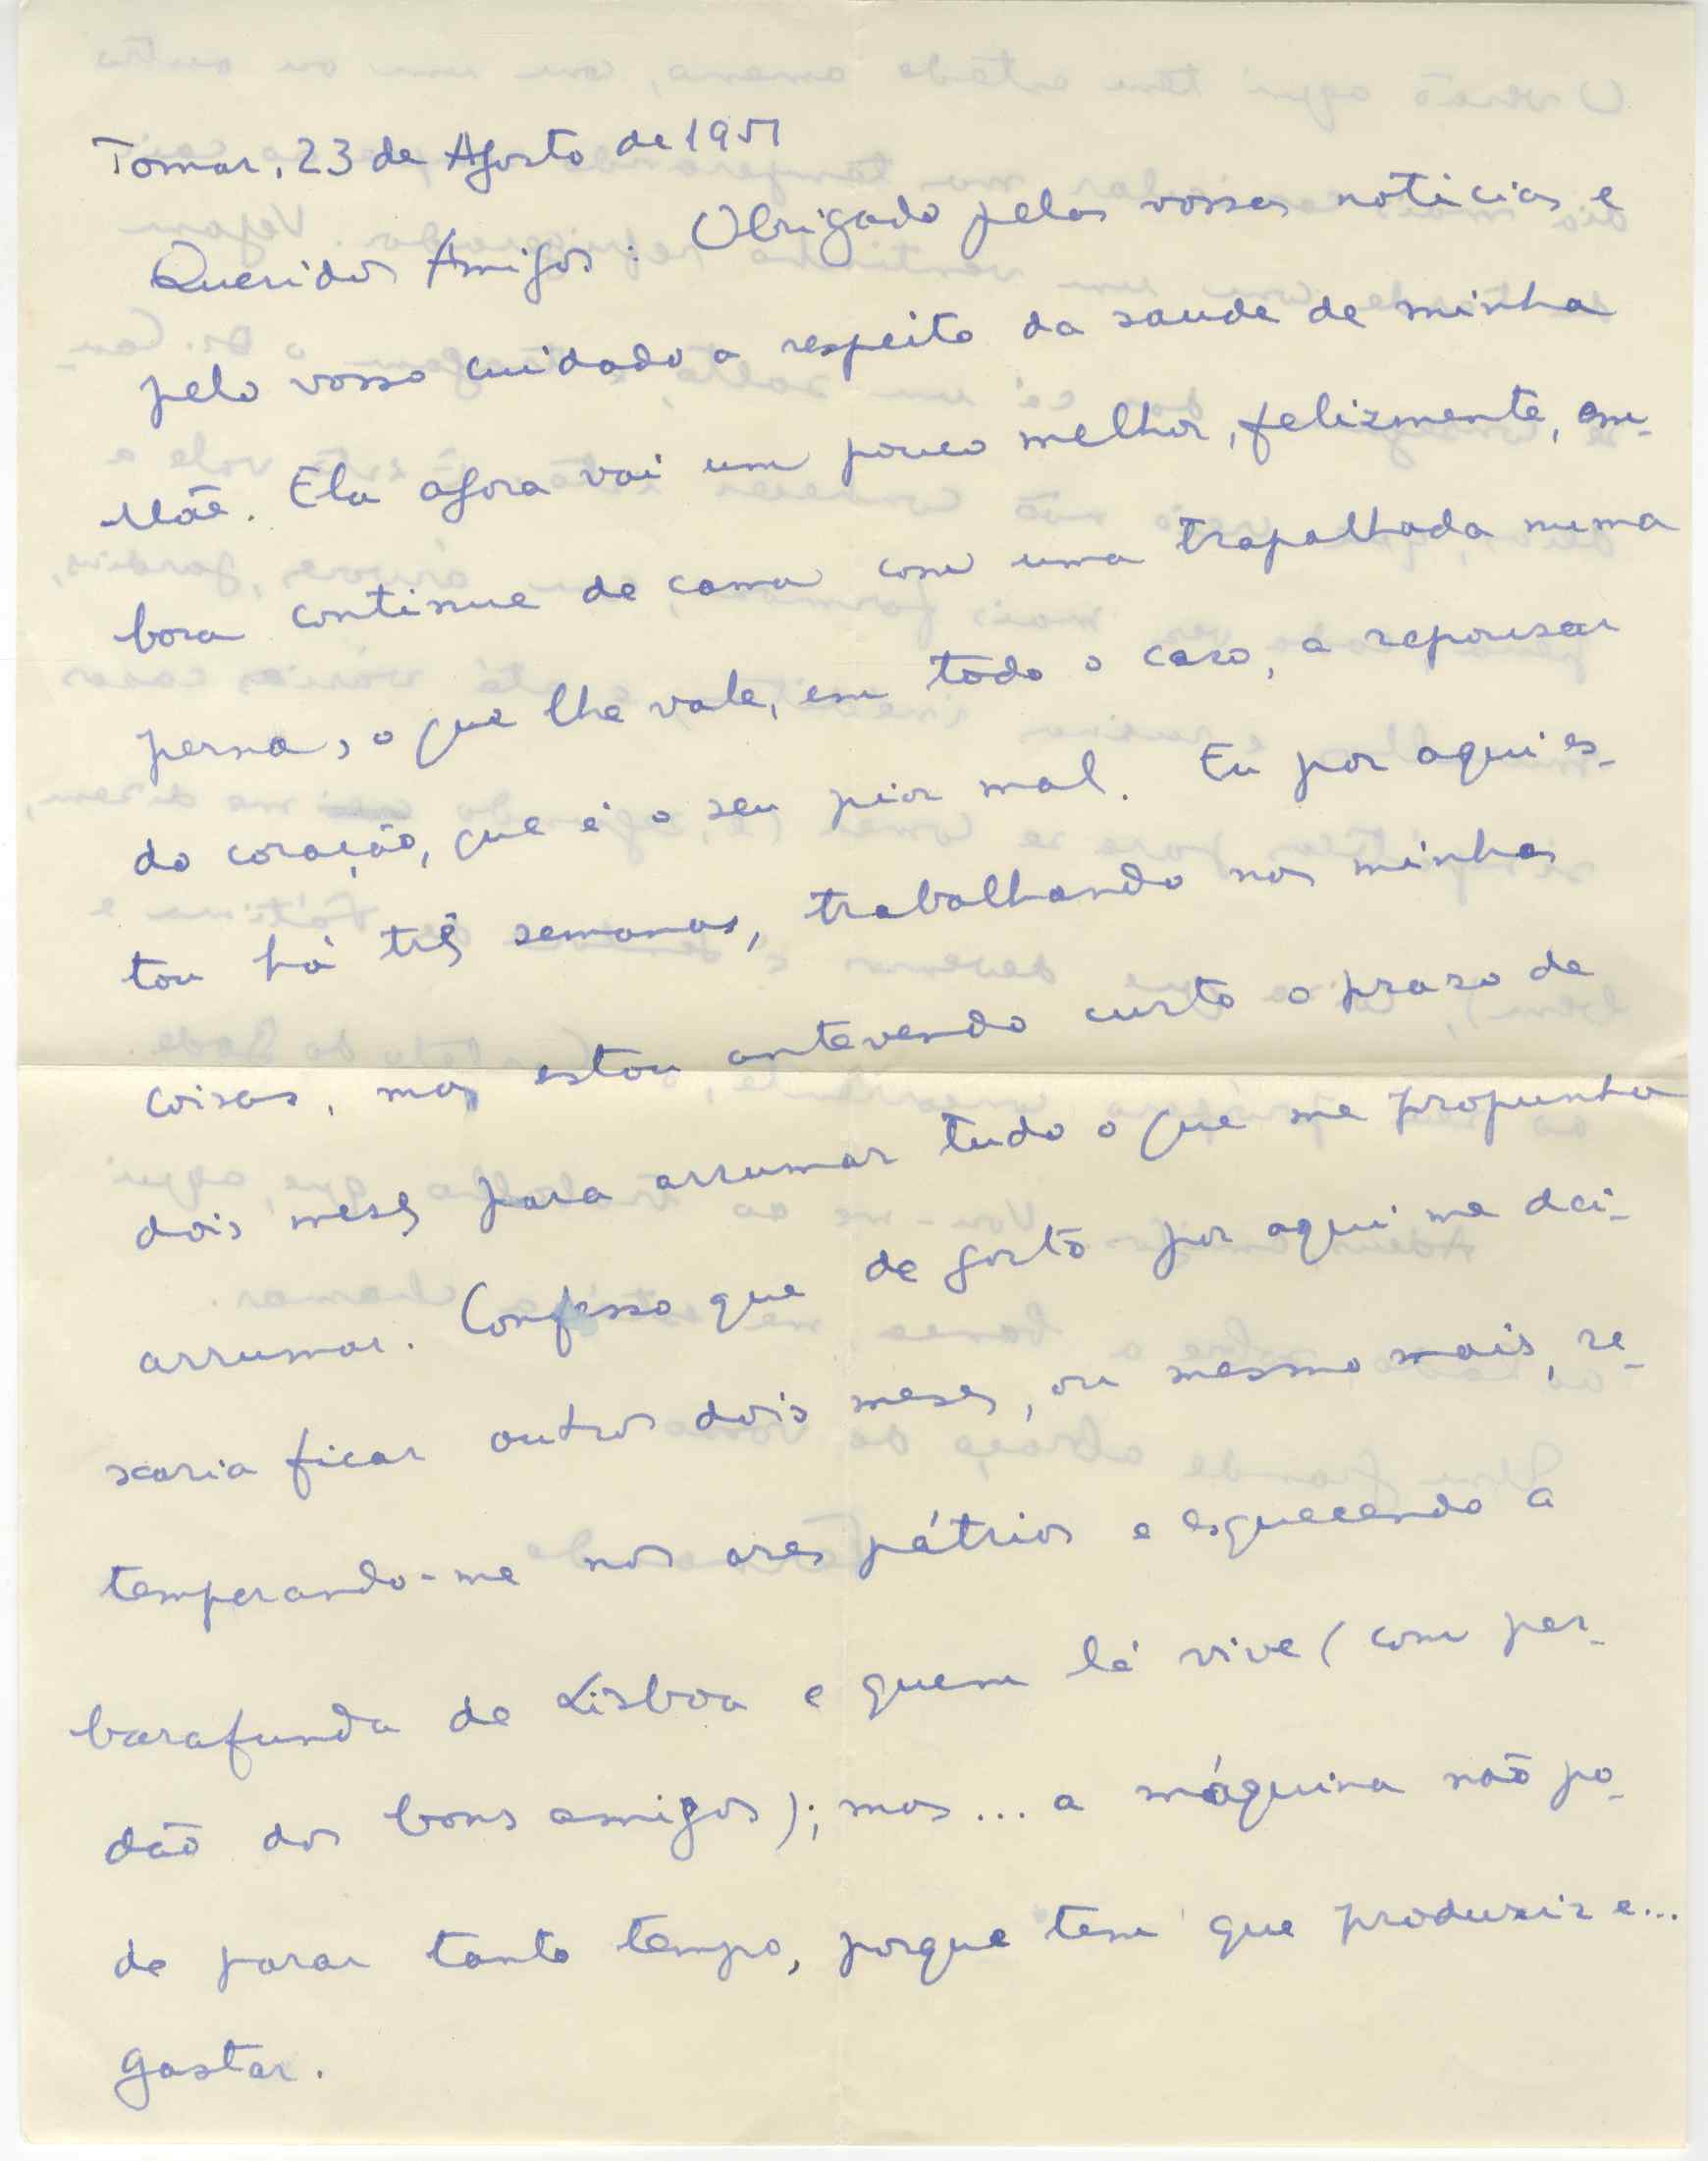 Tomar, 23 de Agosto de 1951
Queridos Amigos: Obrigado pelas vossas noticias e
pelo vosso cuidado a respeito da saude de minha
Mãe. Ela agora vai um pouco melhor, felizmente, em-
bora continue de cama com uma trapalhada numa
perna, o que lhe vale, em todo o caso, a repousar
do coração, que é o seu pior mal. Eu por aqui es-
tou há três semanas, trabalhando nas minhas
coisas, mas estou antevendo curto o prazo de
dois meses para arrumar tudo o que me propunha
arrumar. Confesso que de gosto por aqui me dei-
xaria ficar outros dois meses, ou mesmo mais, re-
temperando-me nos ares pátrios e esquecendo a
barafunda de Lisboa e quem lá vive (com per-
dão dos bons amigos); mas... a máquina não po-
de parar tanto tempo, porque tem que produzir e...
gastar.